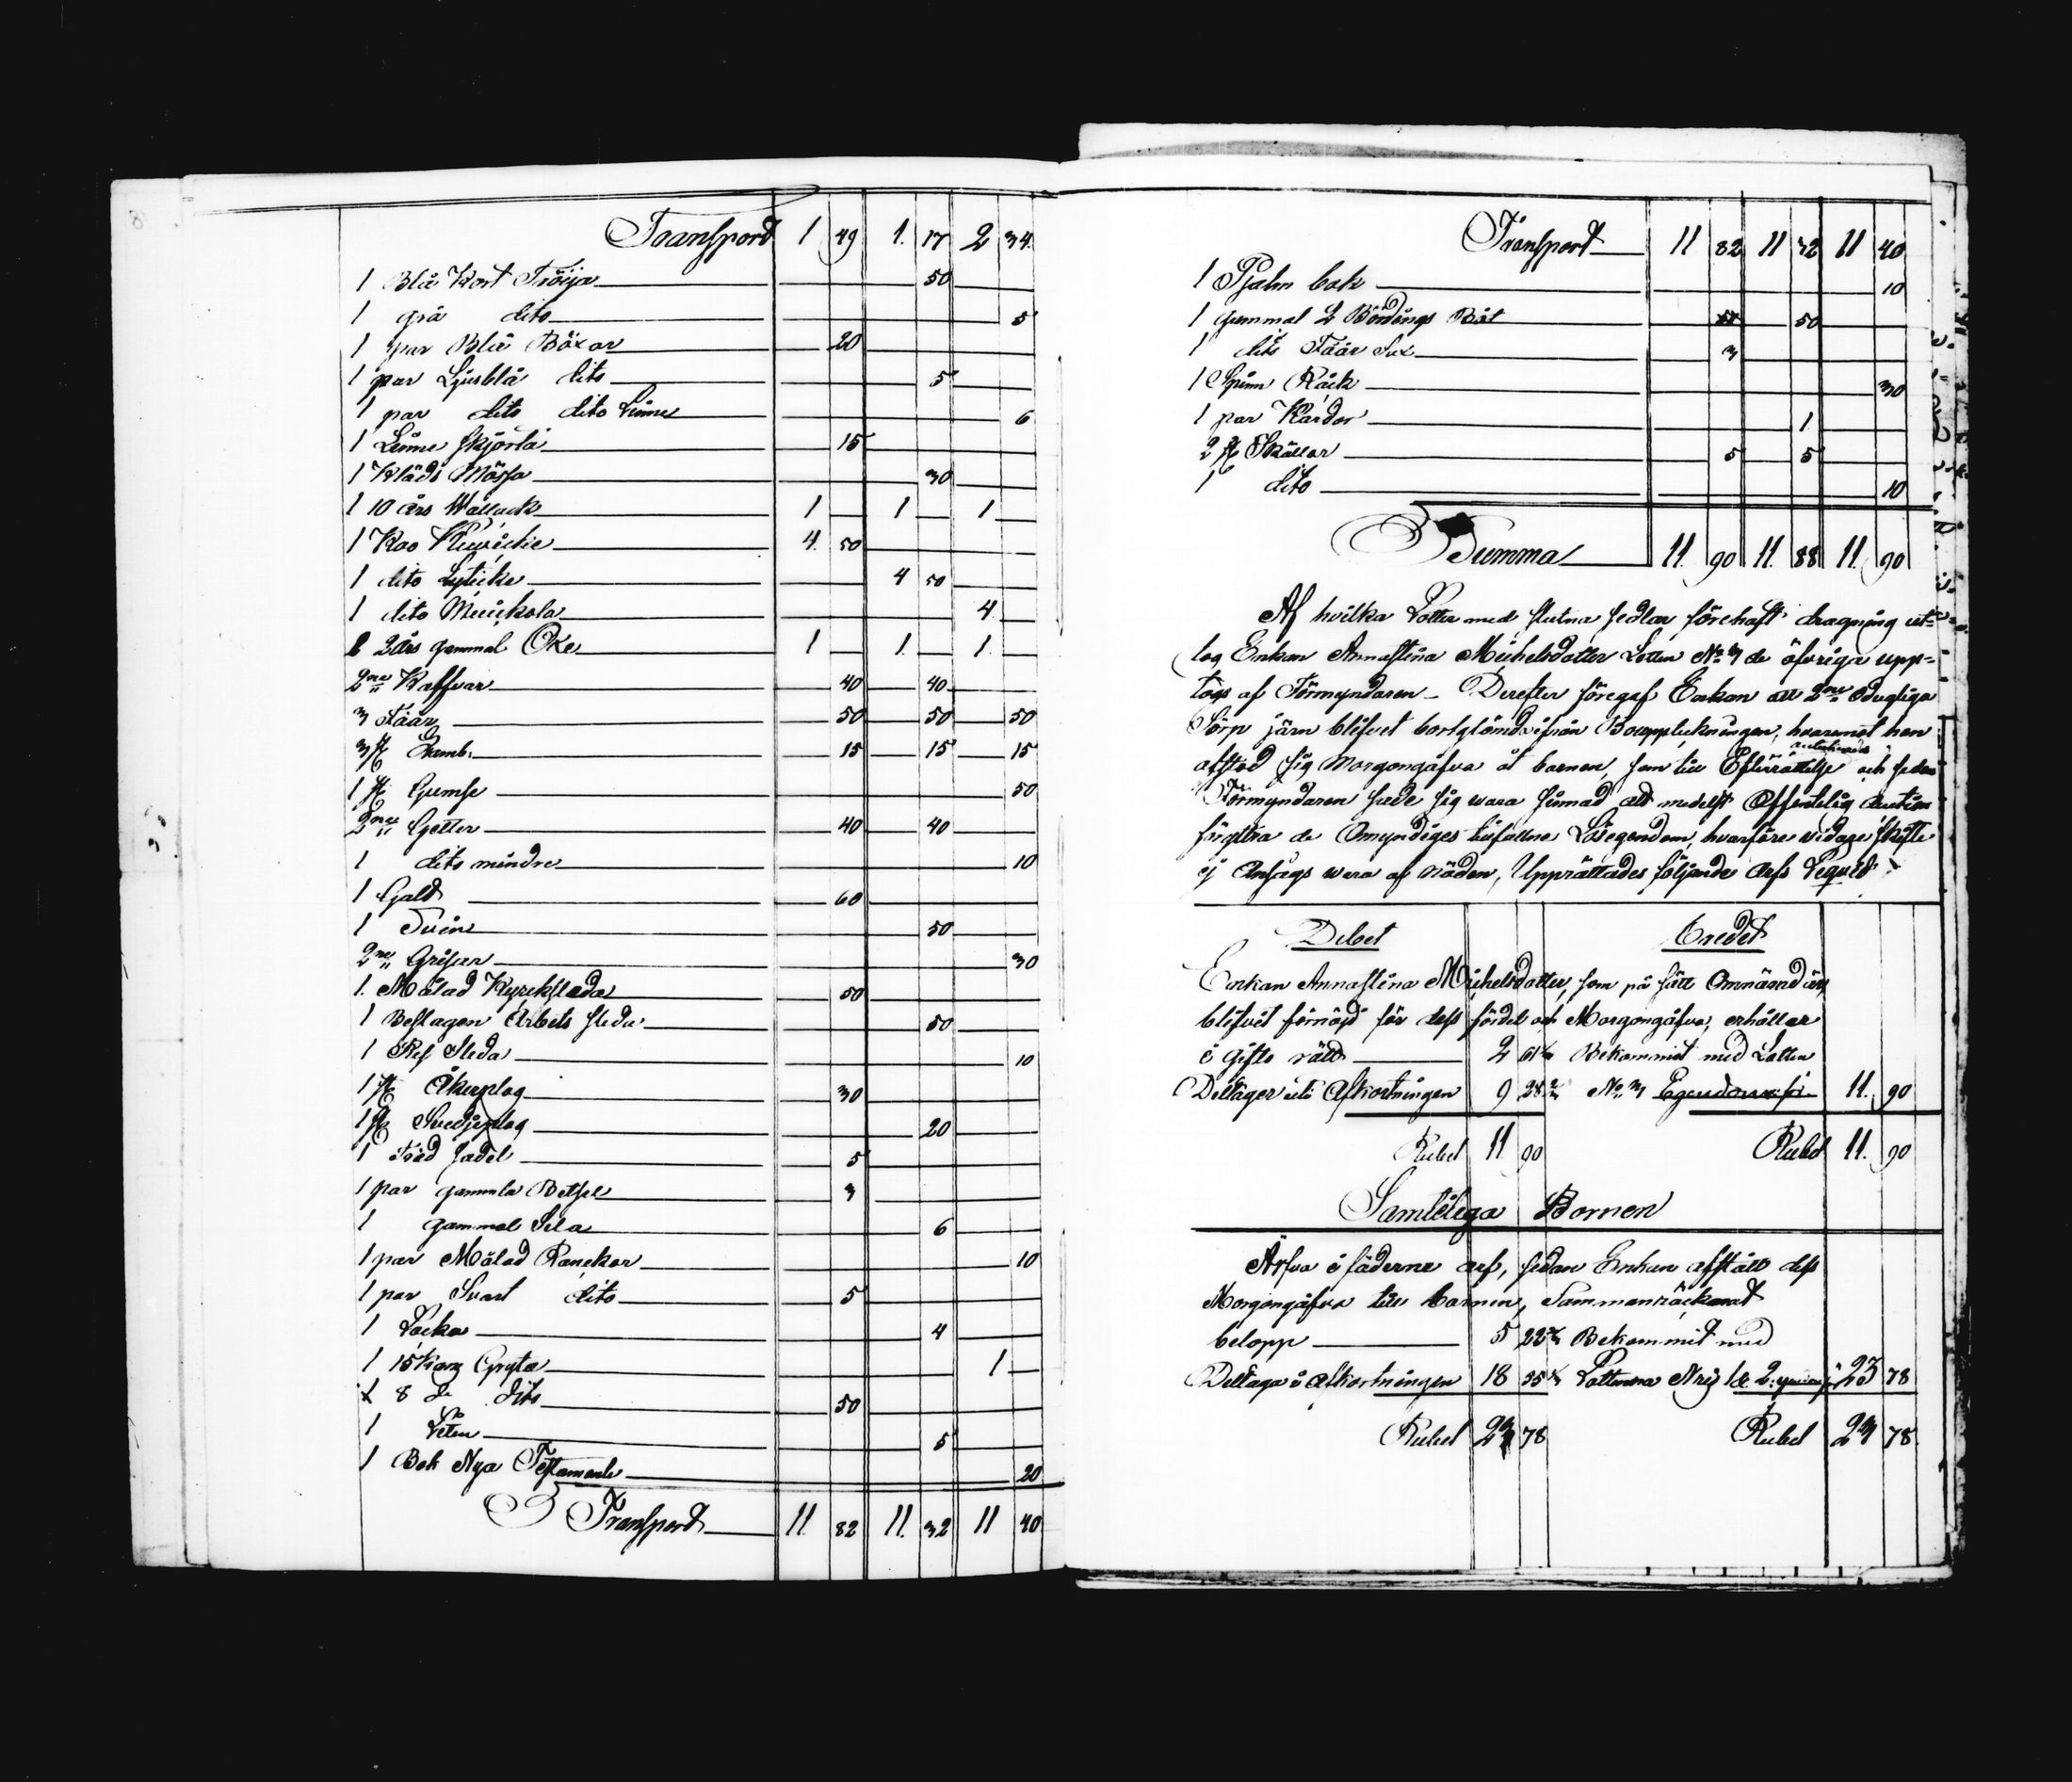 Transport 1 49 1. 17 2 34.
1 Blå Kort Tröija 50
1 grå dito 5
1 par Blå Böxor 20
1 par Ljusblå dito 5
1 par dito dito Linne 6
1 Linne skjorta 15
1 Kläds Mössa 30
1 10 års Wallack 1 1 1
1 Koo 4. 50
1 dito Lyticke 4 50
1 dito Muickola 4
1 2 års gammal Oxe 1 1. 1.
2ne Kalfvar 40 40
3 Fåår 50 50 50
3 st Lamb. 15 15 15
1 st Gumse 50
2ne Getter 40 40
1 dito mindre 10
1 Galt 60
1 Svin 50
2ne Grisar 30
1. Målad Kyrksläda 50
1 Beslagen Arbets släda 50
1 Släda 10
1 st Åkerplog 30
1 st Svedjeplog 20
1 Träd sadel 5
1 par gammla Betsel 3
1 gammal Sela 6
1 par Målad Ranckor 10
1 par Svart dito 5
1 Låcka 4
1 15 Kanz Gryta 1
1 8 d: dito 50
1 5
1 Bok Nya Testamente 20
Transport 11. 82 11. 32 11 40
Transport 11 82 11 32 11 40
1 Psalm bok 10
1 gammal 2 Bördings Båt 50
1 dito Fåår Sax 3
1 Spinn Råck 30
1 par Kardor 1
2 st Skällor 5 5
1 dito 10
Summa 11. 90 11. 88 11. 90
Af hvilka Lotter med slutna sedlar förehaft dragning ut-
tog Enkan Annastina Michelsdotter Lotten No 3 de öfvriga upp-
togs af Förmyndaren - Derefter föregaf Enkan att 2ne odugliga
Törp järn blifvet bortglömda ifrån Bouppteckningen, hvaremot hon
afstod sig Morgongåfva åt barnen, som till Efterrättelse antecknades och sedan
Förmyndaren sade sig wara sinnad att medelst Offentelig Auction
föryttra de Omyndiges tillfallne Lösegendom, hvarföre vidare skifte
ej ansågs wara af nöden, Upprättades följande Arfs Lequid:
Debet Credet
Enkan Annastina Michelsdotter, som på sätt Omnämnd är,
blifvit förnöjd för dess fördel och Morgongåfva, erhåller
i Gifto rätt 2 61 Bekommit med Lotten
Deltager uti Afkortningen 9 28 No 3 Egendom för 11. 90
Rubel 11 90 Rubel 11. 90
Samtelega Bornen
Ärfva i fäderne arf, sedan Enkan afstått dess
Morgongåfva till barnen, Sammanräcknat
belopp 5 22 Bekommit med
Deltaga i Afkortningen 18 55 Lotterna N:ris 1 & 2: 23 78
Rubel 23 78 Rubel 23 78.